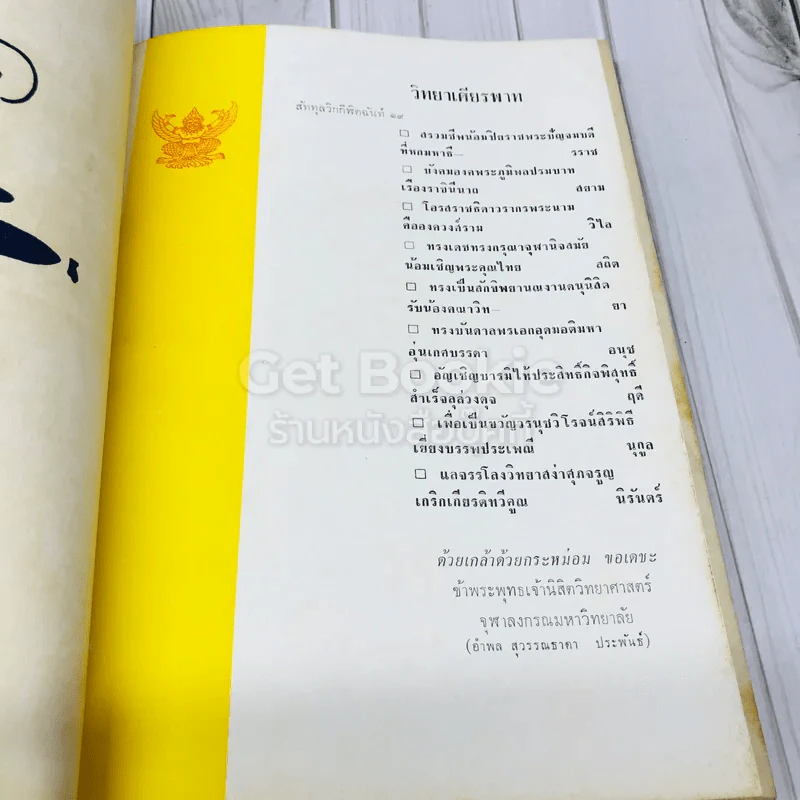 วิทยาเศียรพาท
สัททุลวิกกีฬิตฉันท์ ๑๙
☐ สรวมชีพน้อมปิตราชพระปัญจมบดี
ที่หกมหาธี— รราช
☐ บังคมองคพระภูมิพลปรมบาท
เรืองราชินีนาถ สยาม
☐ โอรสราชธิดาวรากรพระนาม
คือองควงศ์ราม วิไล
☐ ทรงเดชทรงกรุณาจุฬานิจสมัย
น้อมเชิญพระคุณไทย สถิต
☐ ทรงเป็นสักขิพยานณงานดนุนิสิต
รับน้องคณาวิท— ยา
☐ ทรงบันดาลพรเอกอุดมอดิมหา
อุ่นเกศบรรดา อนุช
☐ อัญเชิญบารมีให้ประสิทธิ์กิจพิสุทธิ์
สำเร็จลุล่วงดุจ ฤดี
☐ เพื่อเป็นขวัญวรนุชวิโรจน์สิริพิธี
เยี่ยงบรรพประเพณี นุกูล
☐ แลจรรโลงวิทยาสง่าศุภจรูญ
เกริกเกียรติทวีคูณ นิรันตร์
ด้วยเกล้าด้วยกระหม่อม ขอเดชะ
ข้าพระพุทธเจ้านิสิตวิทยาศาสตร์
จุฬาลงกรณมหาวิทยาลัย
(อำพล สุวรรณธาดา ประพันธ์)
Get Bookie
ร้านหนังสือบุ๊คกี้